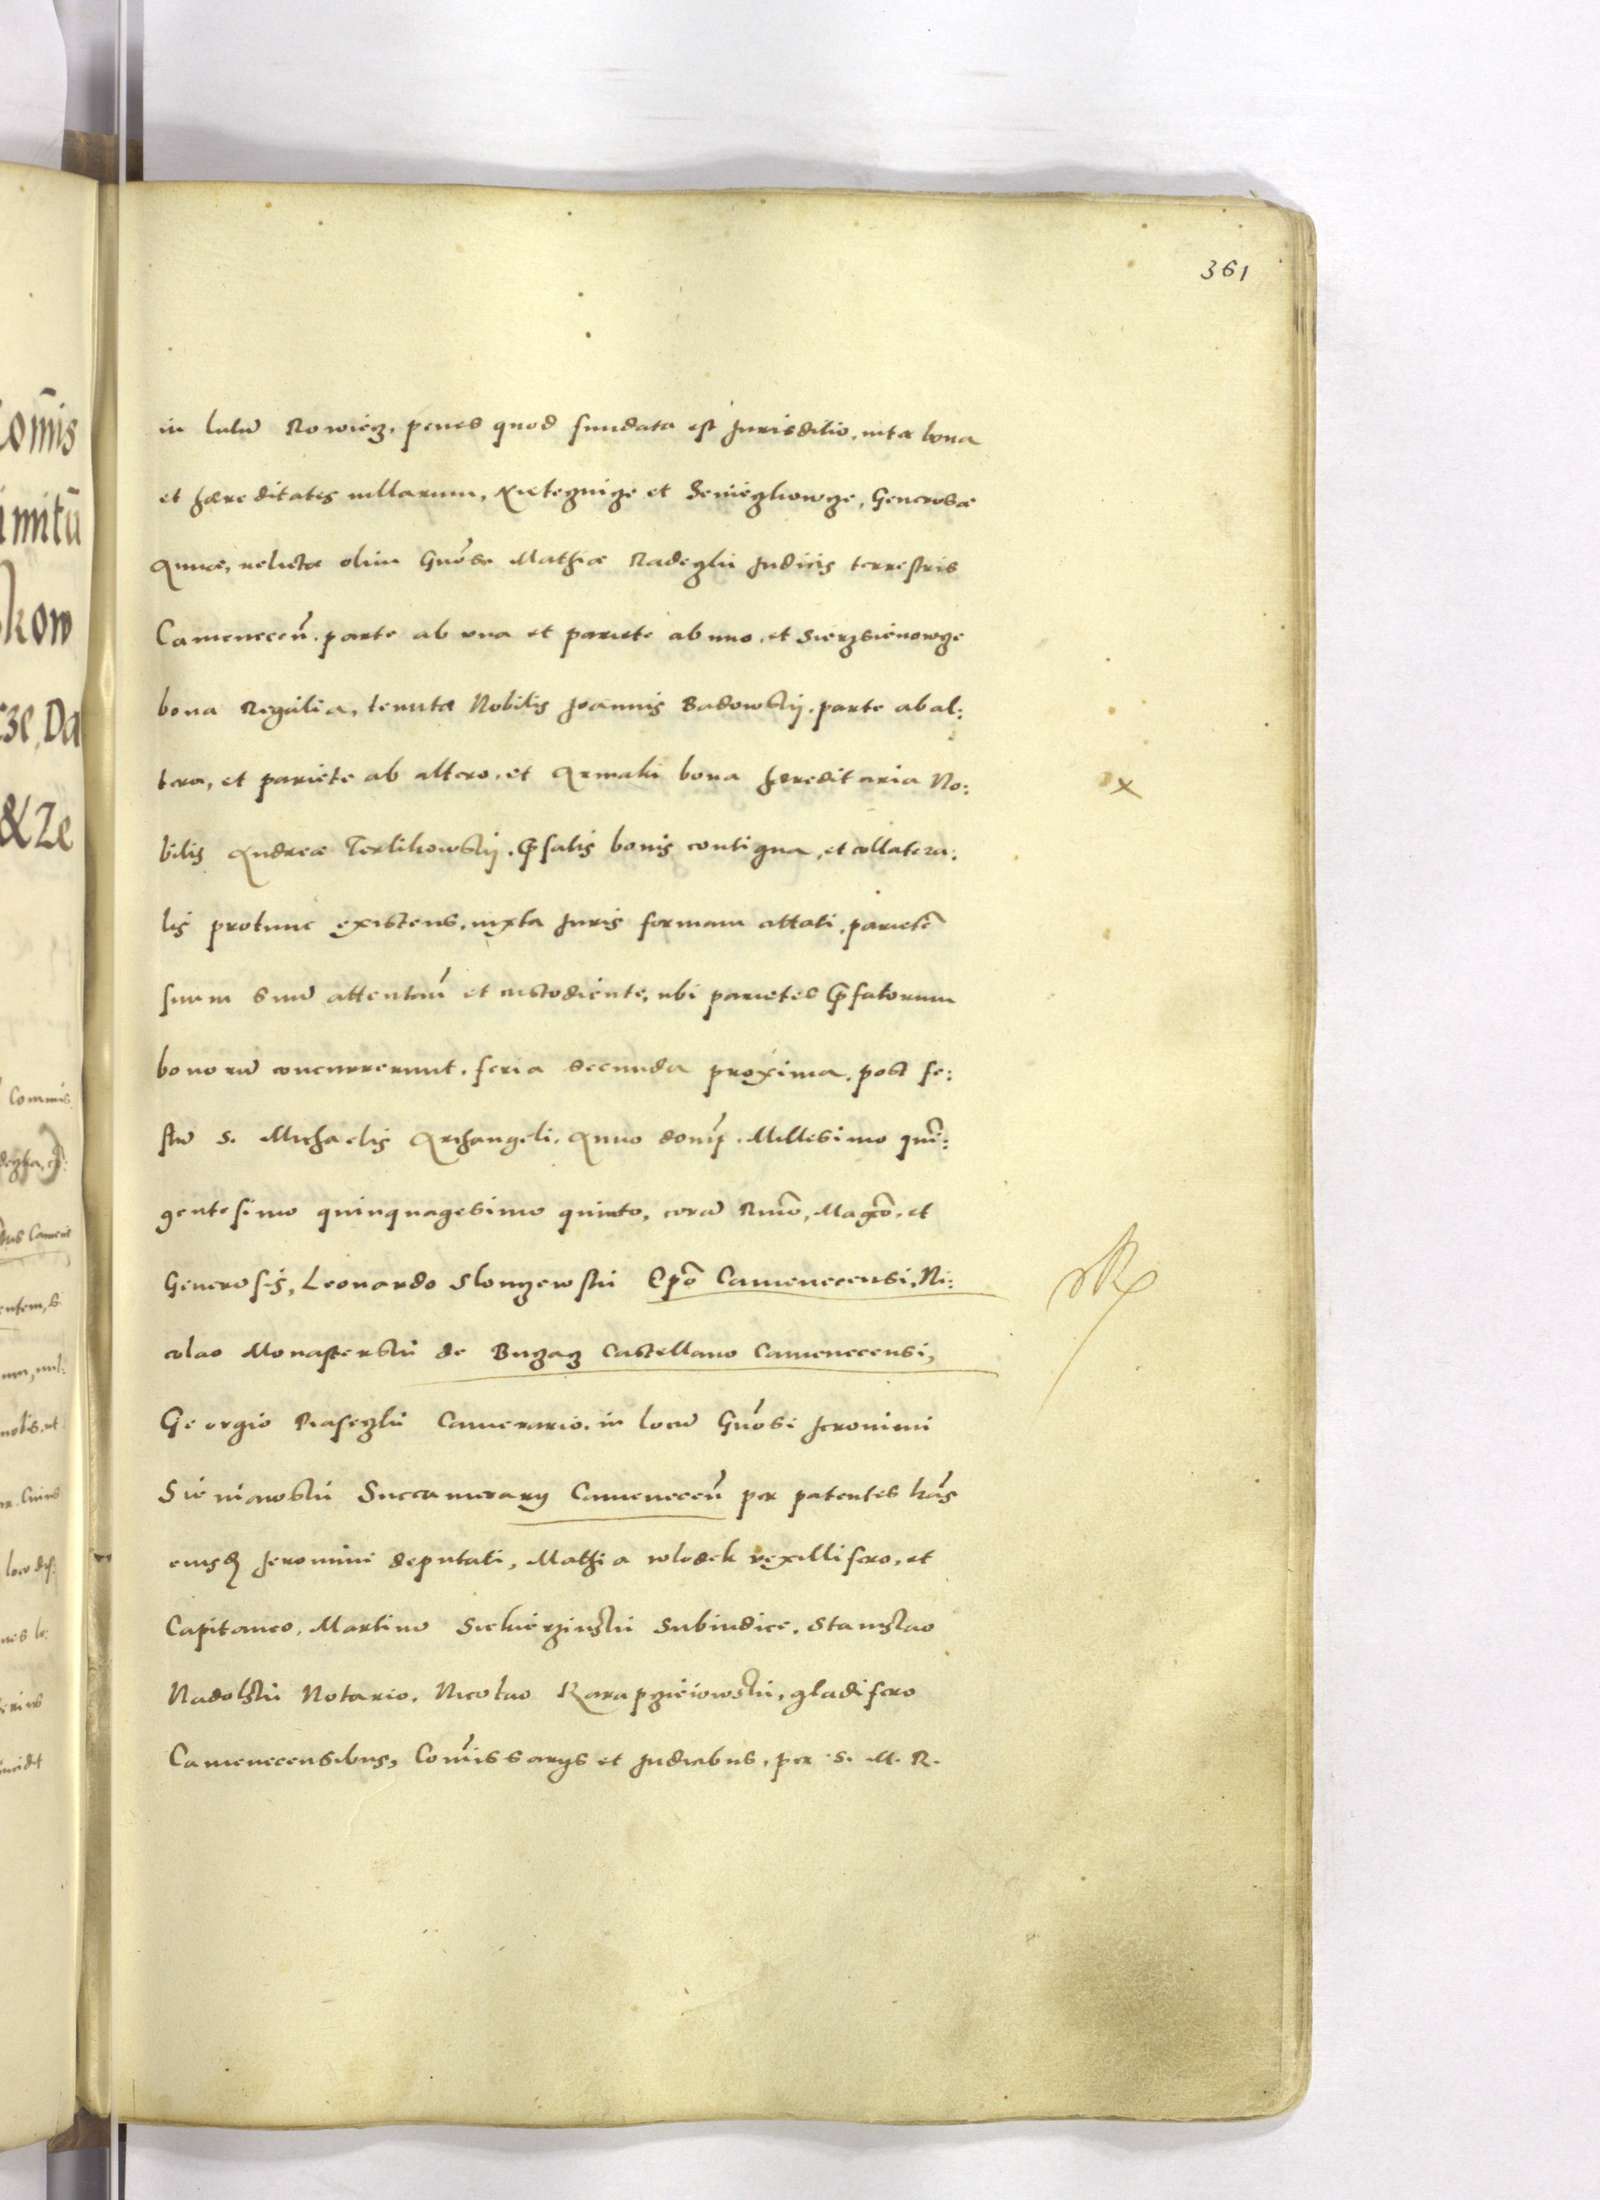 361
in lutũ Rowiecz, penes quod fundata est Jurisditio, inter bona
et hæreditates villarum, et Generosæ
Annæ, relictæ olim Gnõsi Mathiæ Radeczki Judicis terrestris
Camenecen̄. parte ab una et pariete ab uno, et
bona Regalia, tenutæ Nobilis Joannis Badowskij, parte ab al:
tera, et pariete ab altero, et Armaki bona hæreditaria No:
bilis Andreæ Terlikowskij, p̃fatis bonis contigua, et collatera:
lis protunc existens, iuxta Juris formam attati, parietẽ
suum sium̃ attentan̄ et custodiente, ubi parietes p̃fatorum
bonorũ concurrerunt, feria secunda proxima, post fe:
stũ S. Michaelis Archangeli, Anno domj̄. Millesimo quĩ:
gentesimo quinquagesimo quinto, corã Rm̃o, Magc̃o, et
Generosis, Leonardo Slonczewski Ep̃o Camenecensi, Ni:
colao Monasterski de Buczacz Castellano Camenecensi,
Georgio Piaseczki Camerario, in locũ Gnõsi Jeronimi
Sieniawski Succamerarij Camenecen̄ per patentes lr̃as
eiusd Jeronimi deputati, Mathia wlodek vexillifero, et
Capitaneo, Martino Subiudice, Stanislao
Nadolski Notario, Nicolao gladifero
Camenecensibus, Com̃issarijs et Judicibus, per S. M. R.